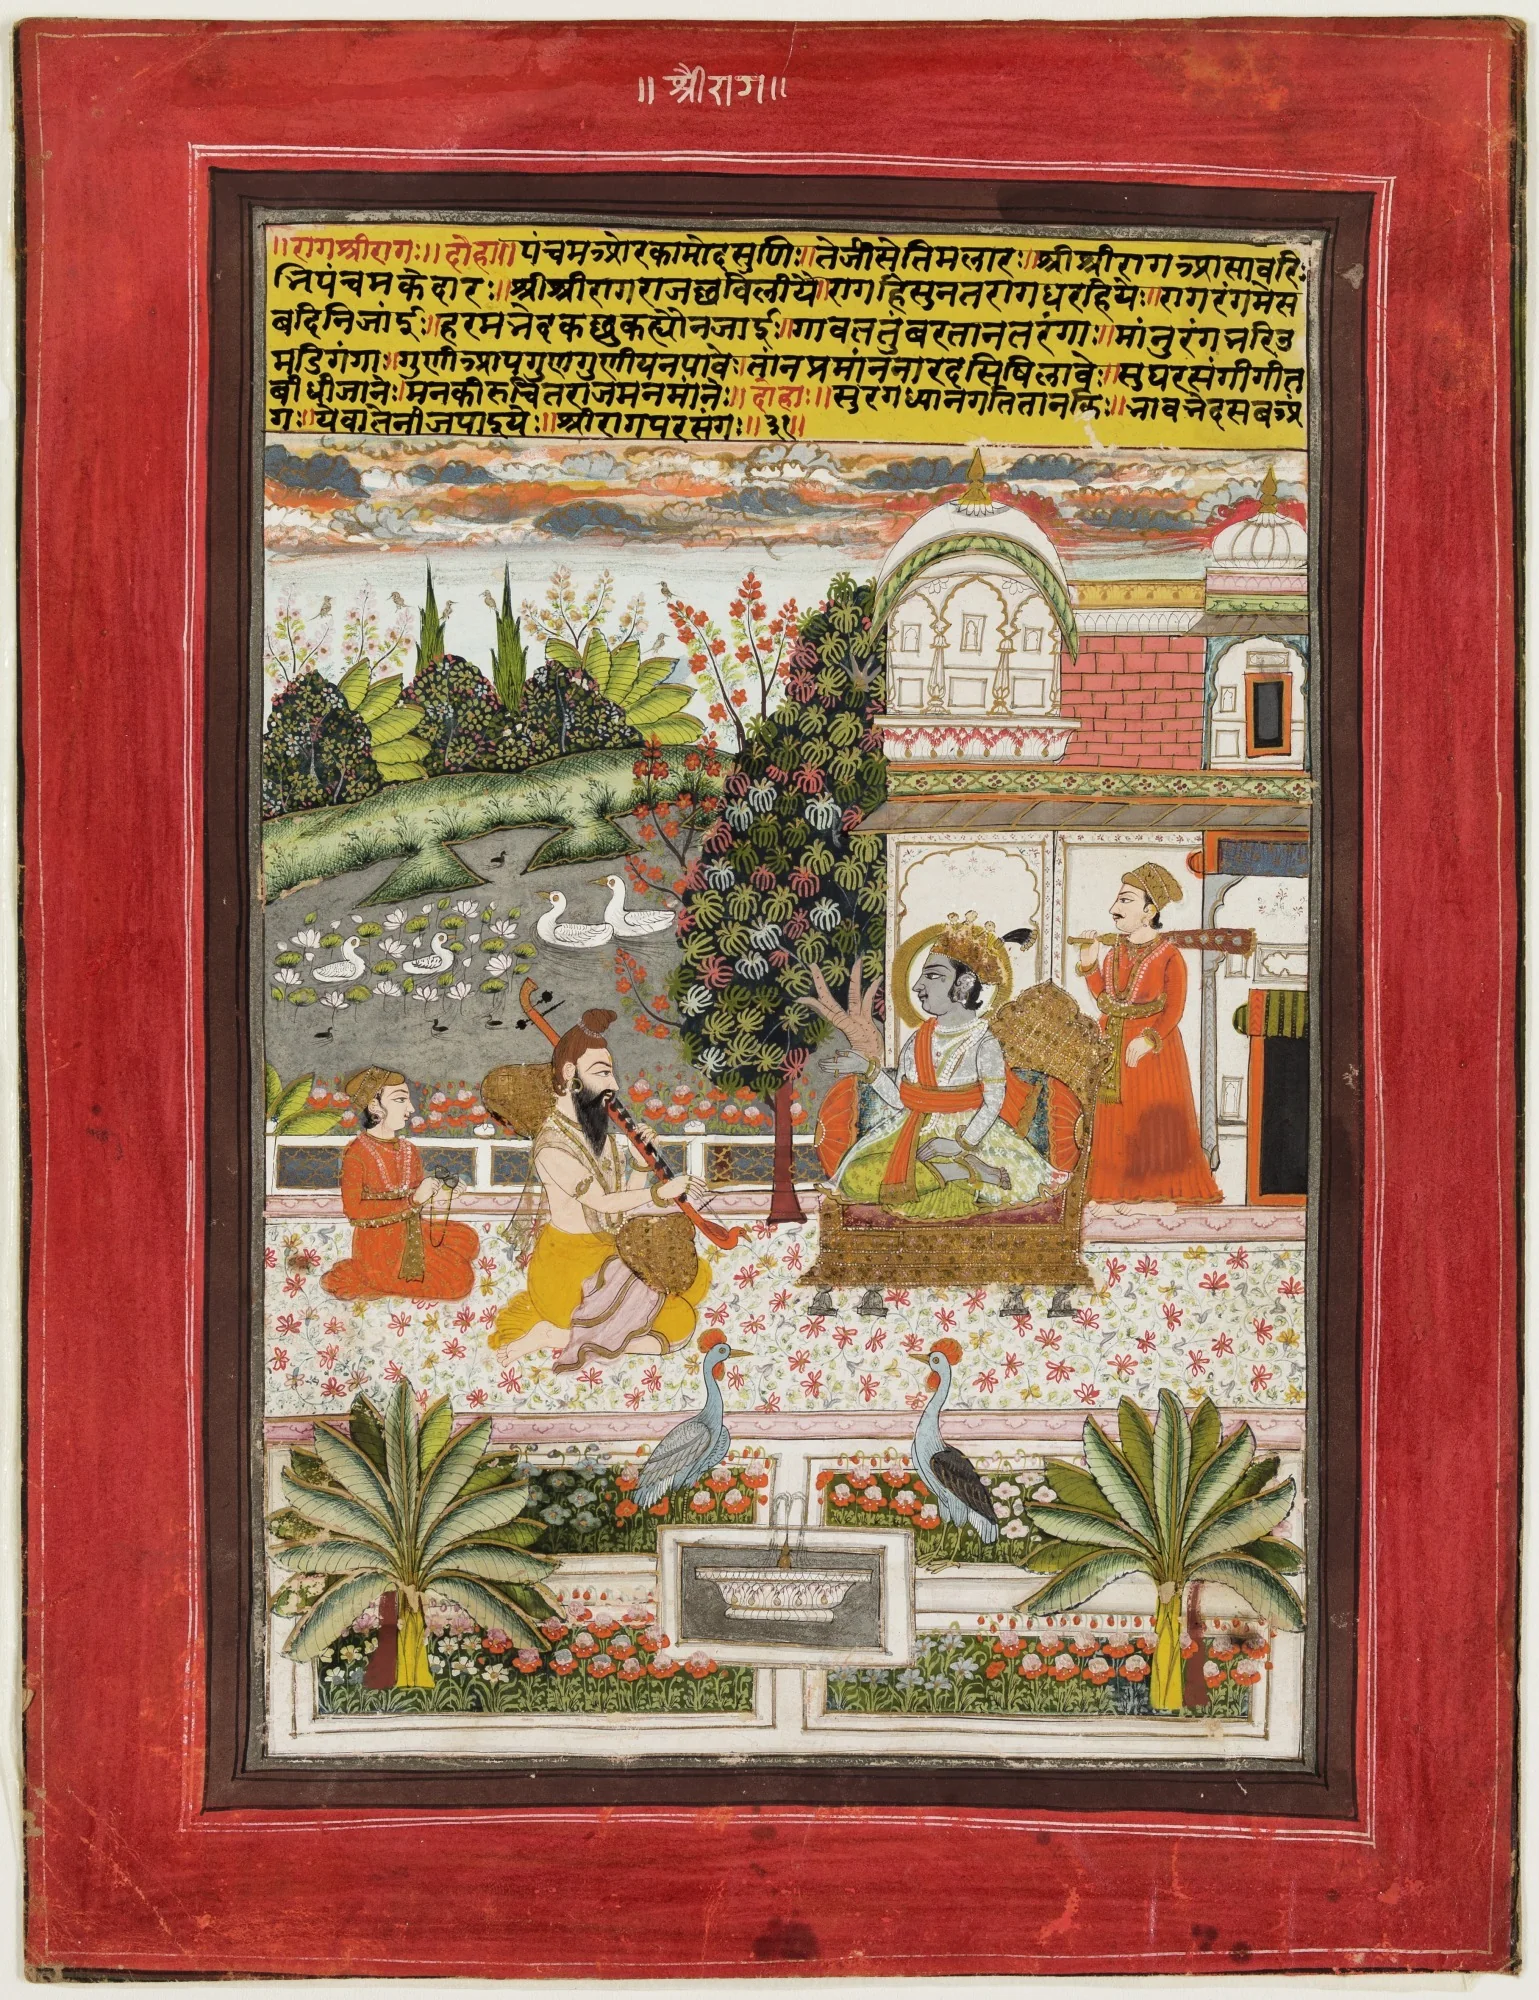 ॥ श्रीराग॥
॥रागश्रीरागः॥ दोहा॥ पंचमओरकामोदसुणिः॥तेजीसेतिमलारः॥श्रीश्रीरागआसावरिः
निपंचमकेदारः॥श्रीश्रीरागराजछविलीयै॥रागहिसुनतरागधरहियेः॥रागरंगमेस
बदिनिजांईः॥हरमनेदकछुकह्यौनजाईः॥गावततुंबरतानतरंगा॥मांनुरंगनरिउ
मडिगंगाः॥गुणीआपगुणगुणीयनपावेः॥तांनप्रमांननारदसिषिलावेः॥सुघरसंगीगीत
बीधीजानेः॥मनकीरुचितराजमनमानेः॥ दोहाः॥सुरगध्यानगतितानकिः॥नावनेदसबअं
गः॥येवालेनीजपाइयेः॥श्रीरागपरसंगः॥३१॥